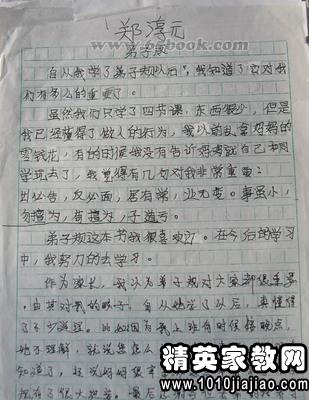 郑淳元
弟子规
自从我学了弟子规以后，我知道了它对我
们有多么的重要了。
虽然我们只学了四节课，东西很少，但是
我已经懂得了做人的行为，我以前乱拿妈妈的
零钱花，有的时候我没有告诉妈妈就自己和同
学玩去了，我觉得有几句对我非常重要：
出必告，反必面，居有常，业无变。事虽小，
勿擅为，苟擅为，子道亏。
弟子规这本书我很喜欢。在今后的学习
中，我努力的去学习。
作为家长，我认为弟子规对大家都很重要，
尤其对我的孩子，自从她学了以后，真懂得
了不少道理。比如因为我上班有时候
她不理解，就说您怎么
知道了，
精英家教网
www.1010jiajiao.com